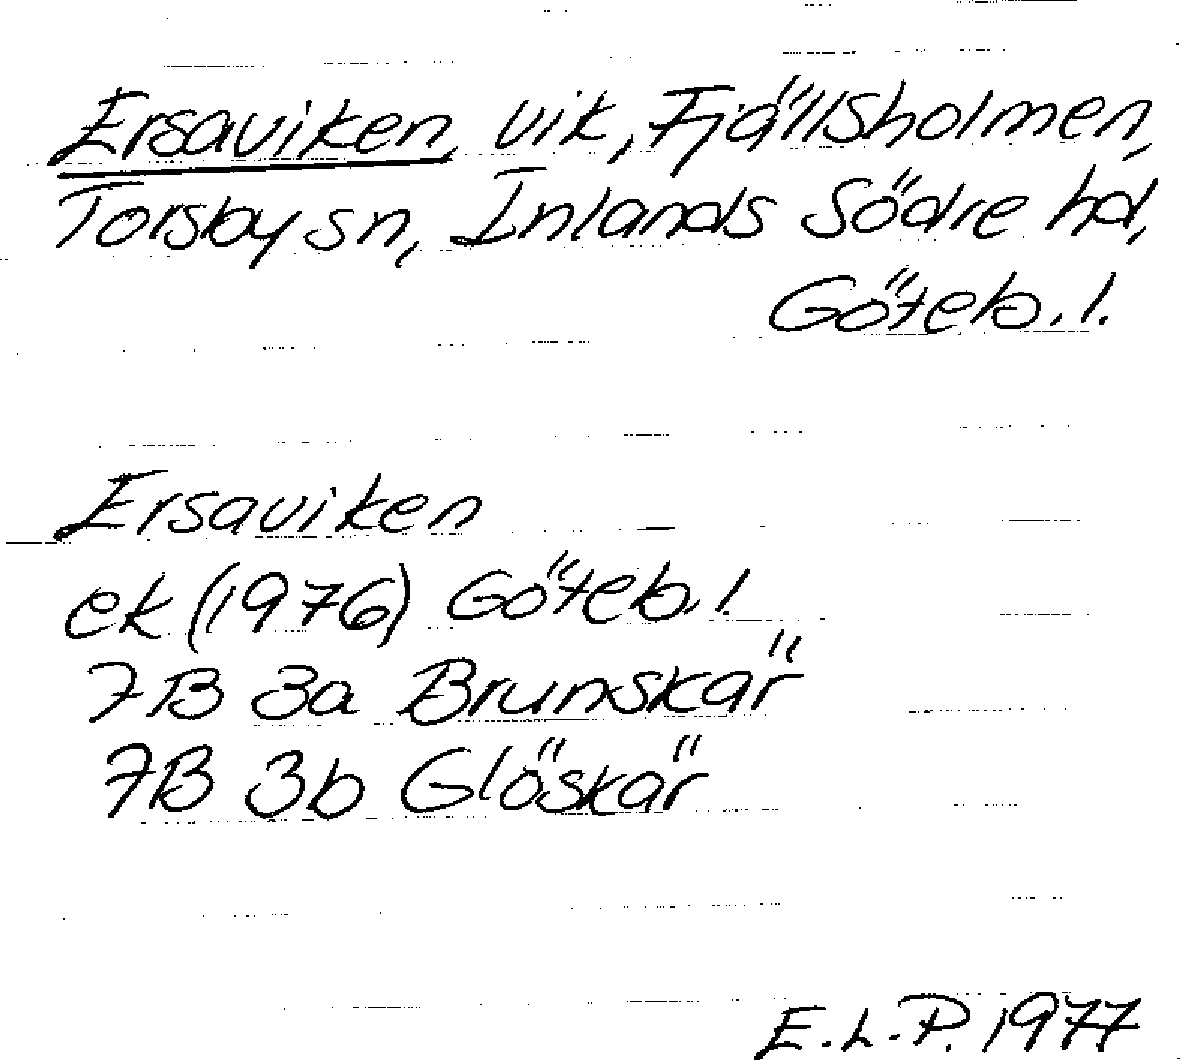 Ersaviken, vik, Fjällsholmen,
Torsby sn, Inlands Södre hd,
Göteb. l.
Ersaviken
ek (1976) Göteb. l.
7B 3a Brunskär
7B 3b Glöskär
E. L. P. 1977